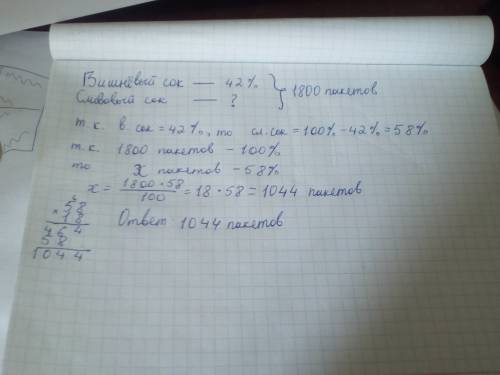 Вишнёвый сок — 42%
Сливовый сок — ? } 1800 пакетов
т.к. в. сок = 42%, то сл. сок = 100% - 42% = 58%
т.к. 1800 пакетов - 100%
то x пакетов - 58%
x = 1800 · 58 / 100 = 18 · 58 = 1044 пакетов
6
58
× 18
464
58
1044
Ответ 1044 пакетов